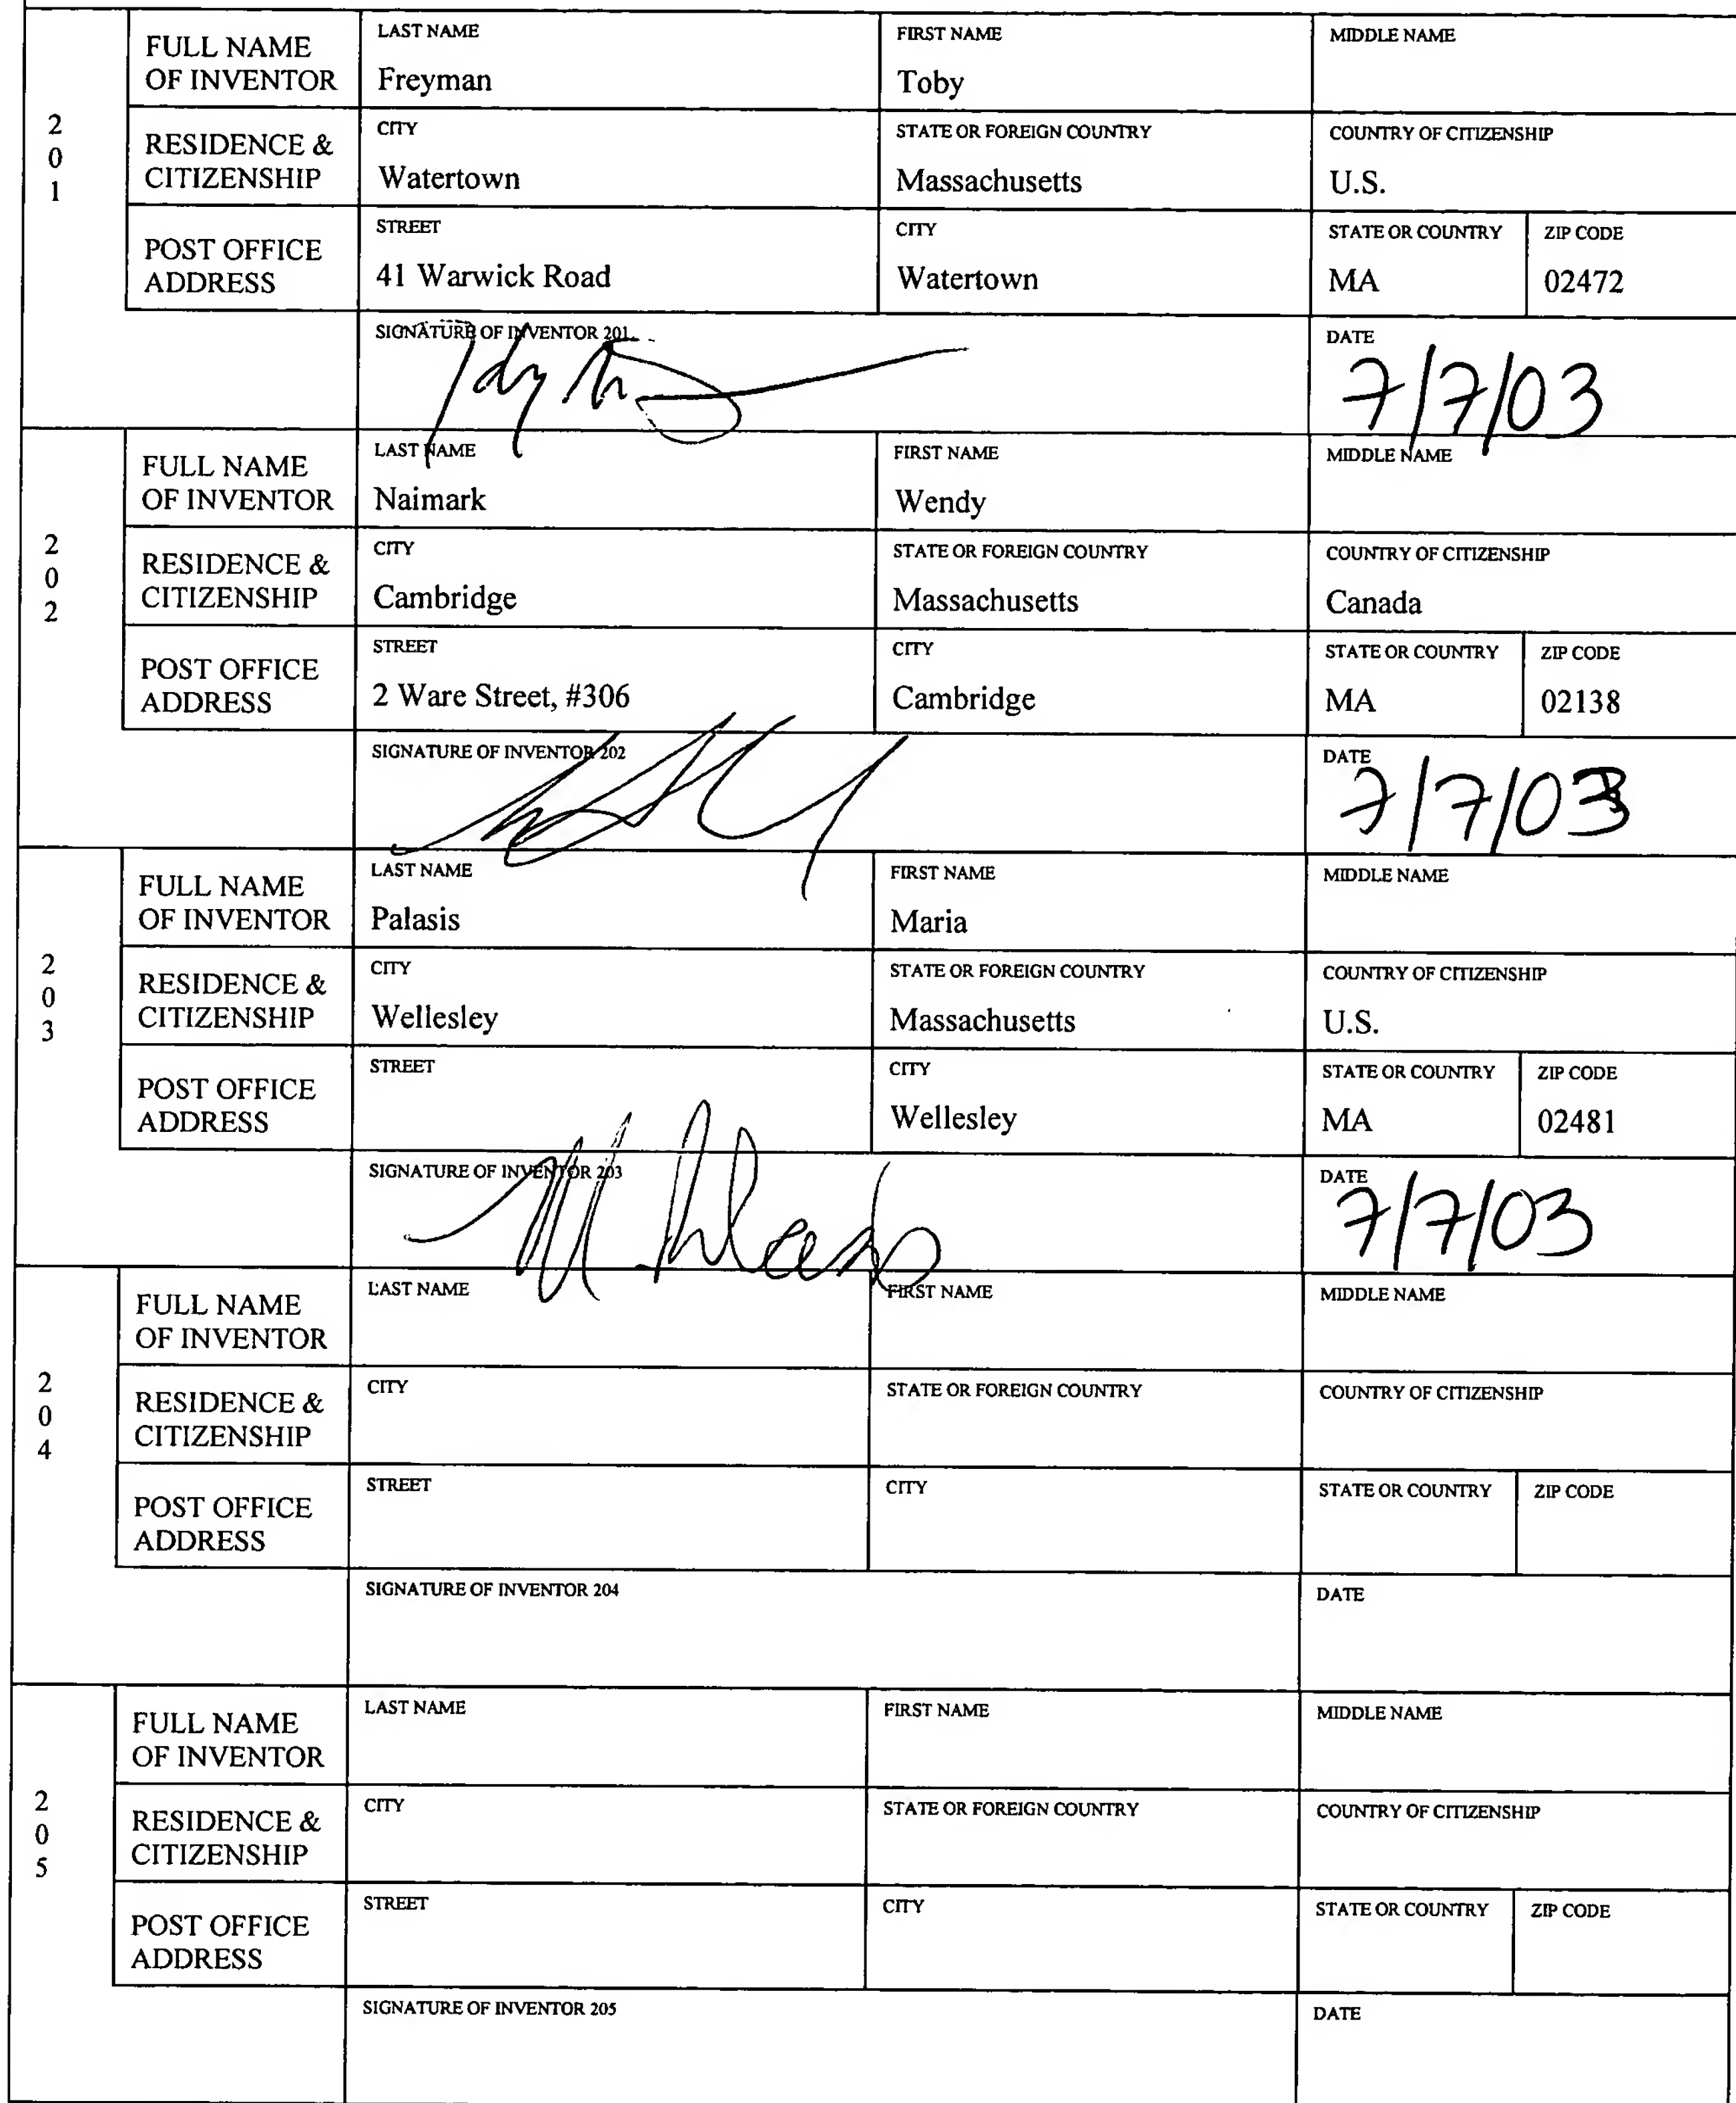 2
0
1
FULL NAME
OF INVENTOR
LAST NAME
Freyman
FIRST NAME
Toby
MIDDLE NAME
RESIDENCE &
CITIZENSHIP
CITY
Watertown
STATE OR FOREIGN COUNTRY
Massachusetts
COUNTRY OF CITIZENSHIP
U.S.
POST OFFICE
ADDRESS
STREET
41 Warwick Road
CITY
Watertown
STATE OR COUNTRY
MA
ZIP CODE
02472
SIGNATURE OF INVENTOR 201
DATE
7/7/03
2
0
2
FULL NAME
OF INVENTOR
LAST NAME
Naimark
FIRST NAME
Wendy
MIDDLE NAME
RESIDENCE &
CITIZENSHIP
CITY
Cambridge
STATE OR FOREIGN COUNTRY
Massachusetts
COUNTRY OF CITIZENSHIP
Canada
POST OFFICE
ADDRESS
STREET
2 Ware Street, #306
CITY
Cambridge
STATE OR COUNTRY
MA
ZIP CODE
02138
SIGNATURE OF INVENTOR 202
DATE
7/7/03
2
0
3
FULL NAME
OF INVENTOR
LAST NAME
Palasis
FIRST NAME
Maria
MIDDLE NAME
RESIDENCE &
CITIZENSHIP
CITY
Wellesley
STATE OR FOREIGN COUNTRY
Massachusetts
COUNTRY OF CITIZENSHIP
U.S.
POST OFFICE
ADDRESS
STREET
CITY
Wellesley
STATE OR COUNTRY
MA
ZIP CODE
02481
SIGNATURE OF INVENTOR 203
DATE
7/7/03
2
0
4
FULL NAME
OF INVENTOR
LAST NAME
FIRST NAME
MIDDLE NAME
RESIDENCE &
CITIZENSHIP
CITY
STATE OR FOREIGN COUNTRY
COUNTRY OF CITIZENSHIP
POST OFFICE
ADDRESS
STREET
CITY
STATE OR COUNTRY
ZIP CODE
SIGNATURE OF INVENTOR 204
DATE
2
0
5
FULL NAME
OF INVENTOR
LAST NAME
FIRST NAME
MIDDLE NAME
RESIDENCE &
CITIZENSHIP
CITY
STATE OR FOREIGN COUNTRY
COUNTRY OF CITIZENSHIP
POST OFFICE
ADDRESS
STREET
CITY
STATE OR COUNTRY
ZIP CODE
SIGNATURE OF INVENTOR 205
DATE